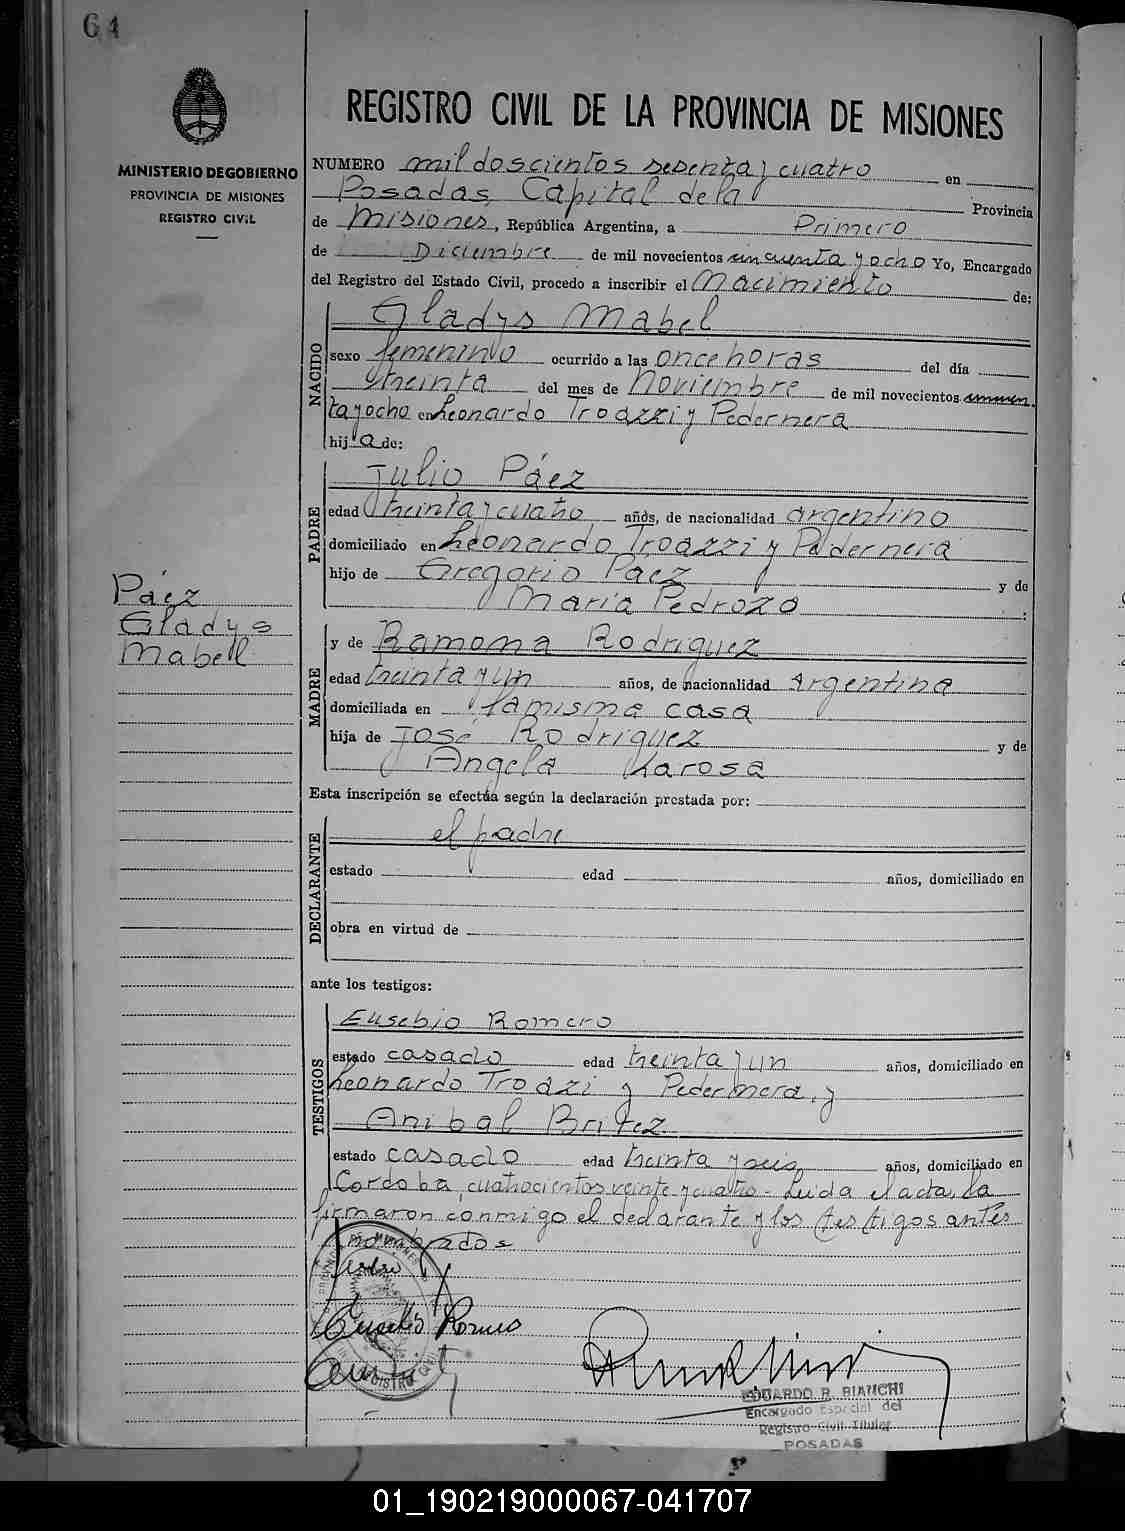 64
MINISTERIO DE GOBIERNO
PROVINCIA DE MISIONES
REGISTRO CIVIL
REGISTRO CIVIL DE LA PROVINCIA DE MISIONES
NUMERO mil doscientos sesenta y cuatro en
Posadas, Capital de la Provincia
de Misiones, República Argentina, a Primero
de Diciembre de mil novecientos cincuenta y ocho Yo, Encargado
del Registro del Estado Civil, procedo a inscribir el Nacimiento de:
NACIDO
Gladys Mabel
sexo femenino ocurrido a las once horas del día
treinta del mes de Noviembre de mil novecientos cincuen
ta y ocho en Leonardo Troazzi y Pedernera
hija de:
PADRE
Julio Páez
edad treinta y cuatro años, de nacionalidad argentino
domiciliado en Leonardo Troazzi y Pedernera
hijo de Gregorio Paez y de
Maria Pedrozo
Páez
Gladys
Mabel
MADRE
y de Ramona Rodriguez
edad treinta y un años, de nacionalidad Argentina
domiciliada en la misma casa
hija de José Rodriguez y de
Angela Larosa
Esta inscripción se efectúa según la declaración prestada por:
DECLARANTE
el padre
estado edad años, domiciliado en
obra en virtud de
ante los testigos:
TESTIGOS
Eusebio Romero
estado casado edad treinta y un años, domiciliado en
Leonardo Troazi y Pedernera, y
Anibal Britez
estado casado edad treinta y seis años, domiciliado en
Cordoba, cuatrocientos veinte y cuatro - Leida el acta, la
firmaron conmigo el declarante y los testigos antes
nombrados
Eusebio Romero
EDUARDO R. BIANCHI
Encargado Especial del
Registro Civil Titular
POSADAS
01_190219000067-041707